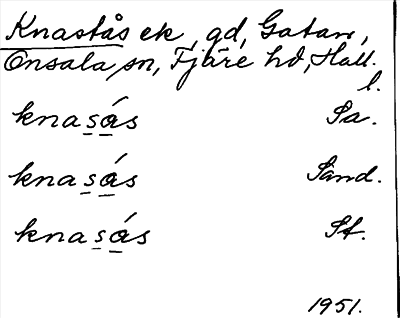 Knastås ek, gd, Gatan,
Onsala sn, Fjäre hd, Hall.
l.
knasás Sa.
knasás Sand.
knasás St.
1951.